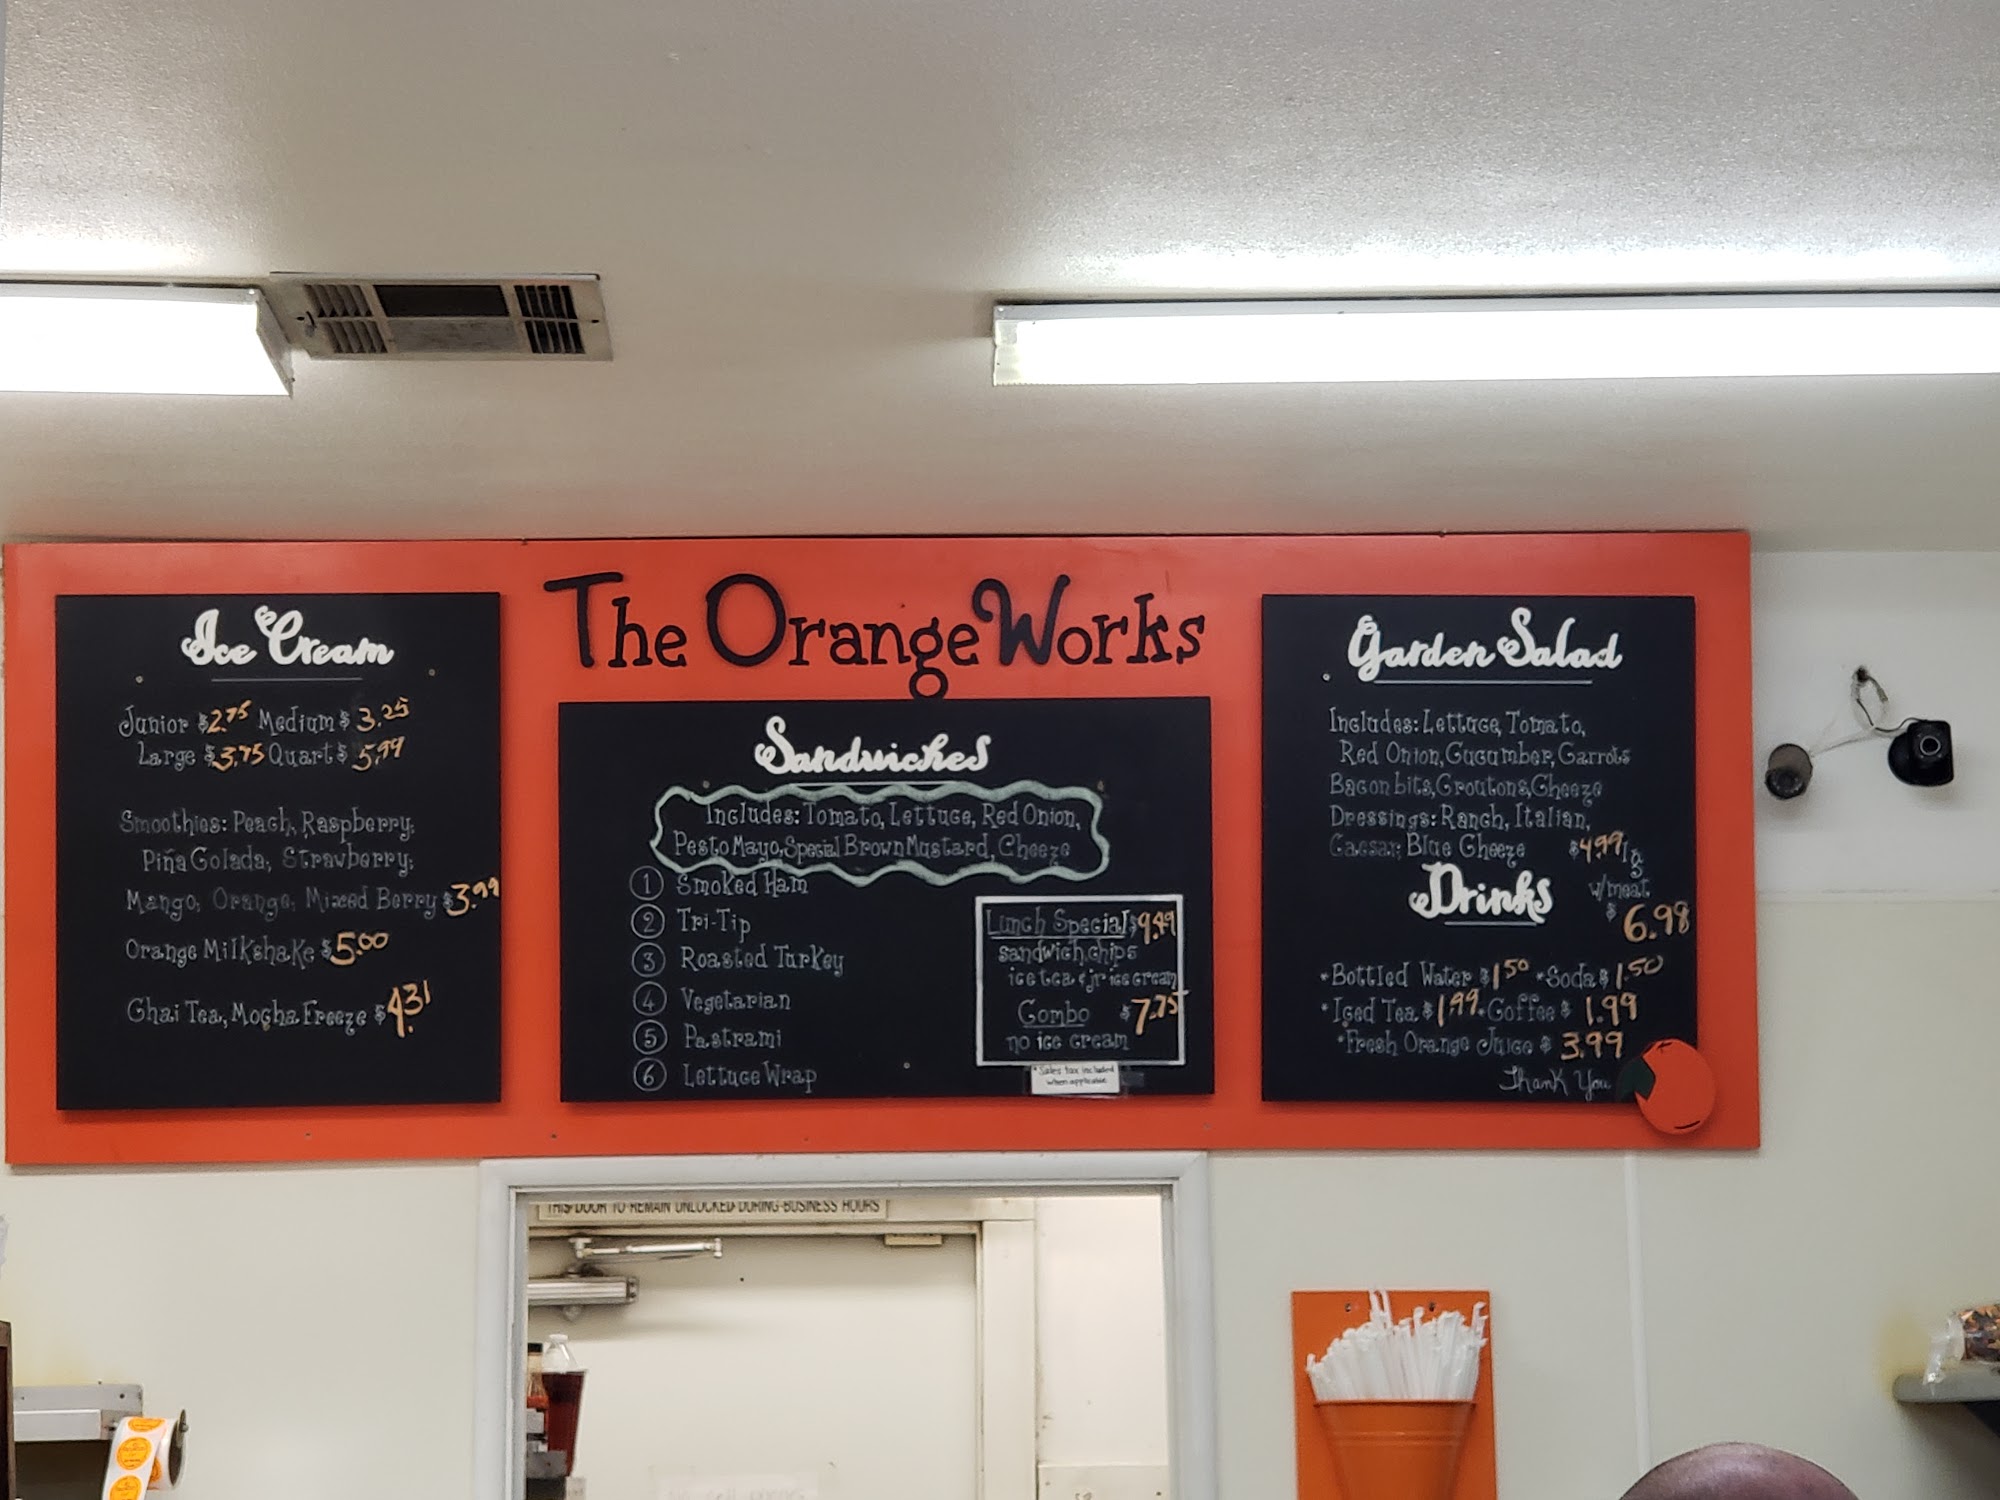 The Orange Works
Ice Cream
Junior $2.75 Medium $3.25
Large $3.75 Quart $5.99
Smoothies: Peach, Raspberry,
Piña Colada, Strawberry,
Mango, Orange, Mixed Berry $3.99
Orange Milkshake $5.00
Chai Tea, Mocha Freeze $4.31
Sandwiches
Includes: Tomato, Lettuce, Red Onion,
Pesto Mayo, Special Brown Mustard, Cheeze
1 Smoked Ham
2 Tri-Tip
3 Roasted Turkey
4 Vegetarian
5 Pastrami
6 Lettuce Wrap
Lunch Special $9.49
sandwich, chips
ice tea & jr ice cream
Combo $7.75
no ice cream
*Sales tax included
when applicable
Garden Salad
Includes: Lettuce, Tomato,
Red Onion, Cucumber, Carrots
Bacon bits, Croutons, Cheeze
Dressings: Ranch, Italian,
Caesar, Blue Cheeze $4.99
w/meat
$6.98
Drinks
*Bottled Water $1.50 *Soda $1.50
*Iced Tea $1.99 *Coffee $1.99
*Fresh Orange Juice $3.99
Thank You
THIS DOOR TO REMAIN UNLOCKED DURING BUSINESS HOURS